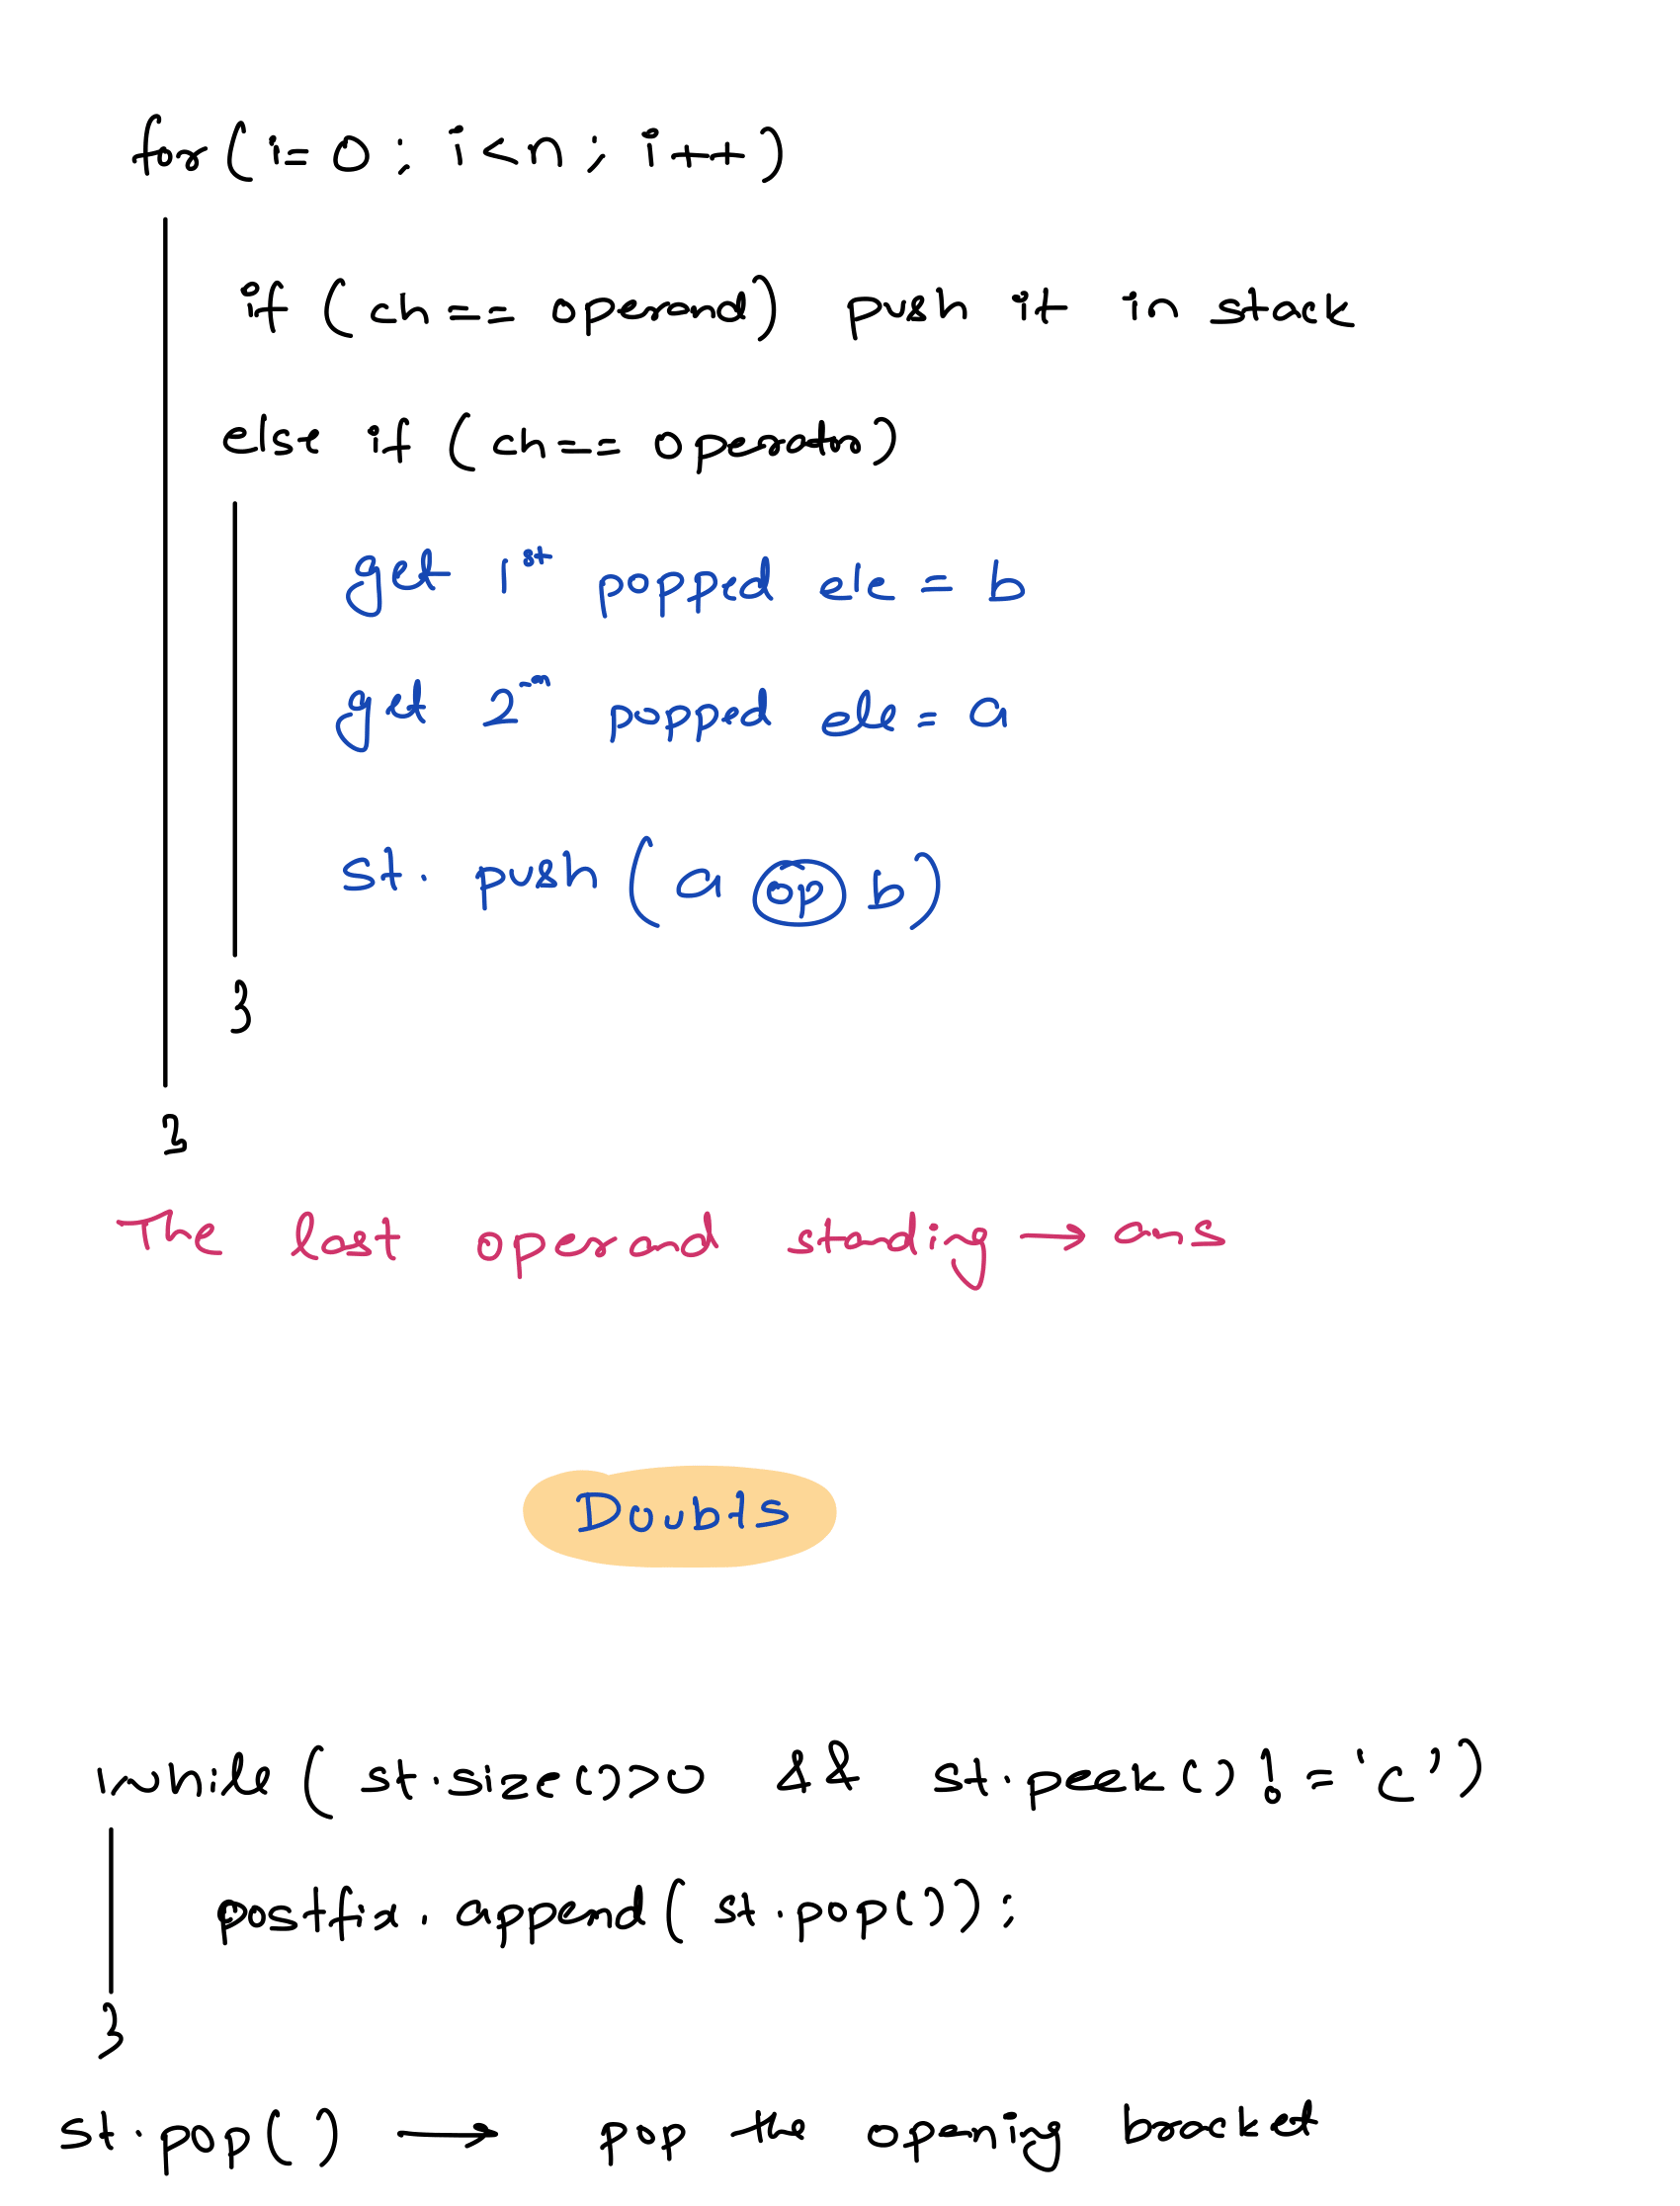 for(i=0; i<n; i++)
if (ch == operand) push it in stack
else if (ch == operator)
get 1st popped ele = b
get 2nd popped ele = a
st. push (a op b)
}
}
The last operand standing → ans
Doubts
while( st.size()>0 && st.peek() != '(')
postfix.append( st.pop());
}
st.pop() → pop the opening bracket